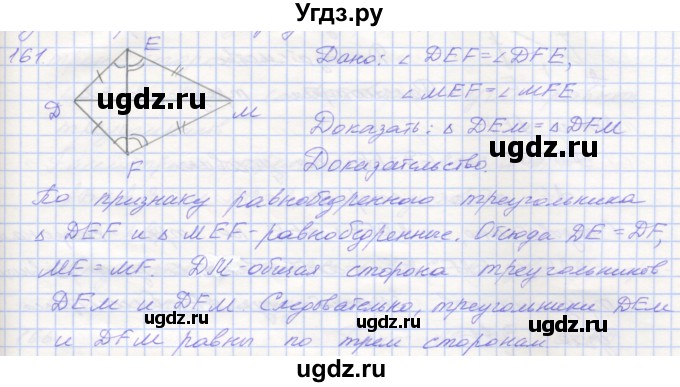 Угдз.ру
161.
E
Дано: ∠ DEF = ∠ DFE,
∠ MEF = ∠ MFE
D
M
ugdz.ru
ugdz.ru
Доказать: △ DEM = △ DFM
F
Доказательство.
По признаку равнобедренного треугольника
△ DEF и △ MEF - равнобедренные. Отсюда DE = DF,
ME = MF. DM - общая сторона треугольников
DEM и DFM. Следовательно, треугольники DEM
и DFM равны по трем сторонам
ugdz.ru
ugdz.ru
ugdz.ru
ugdz.ru